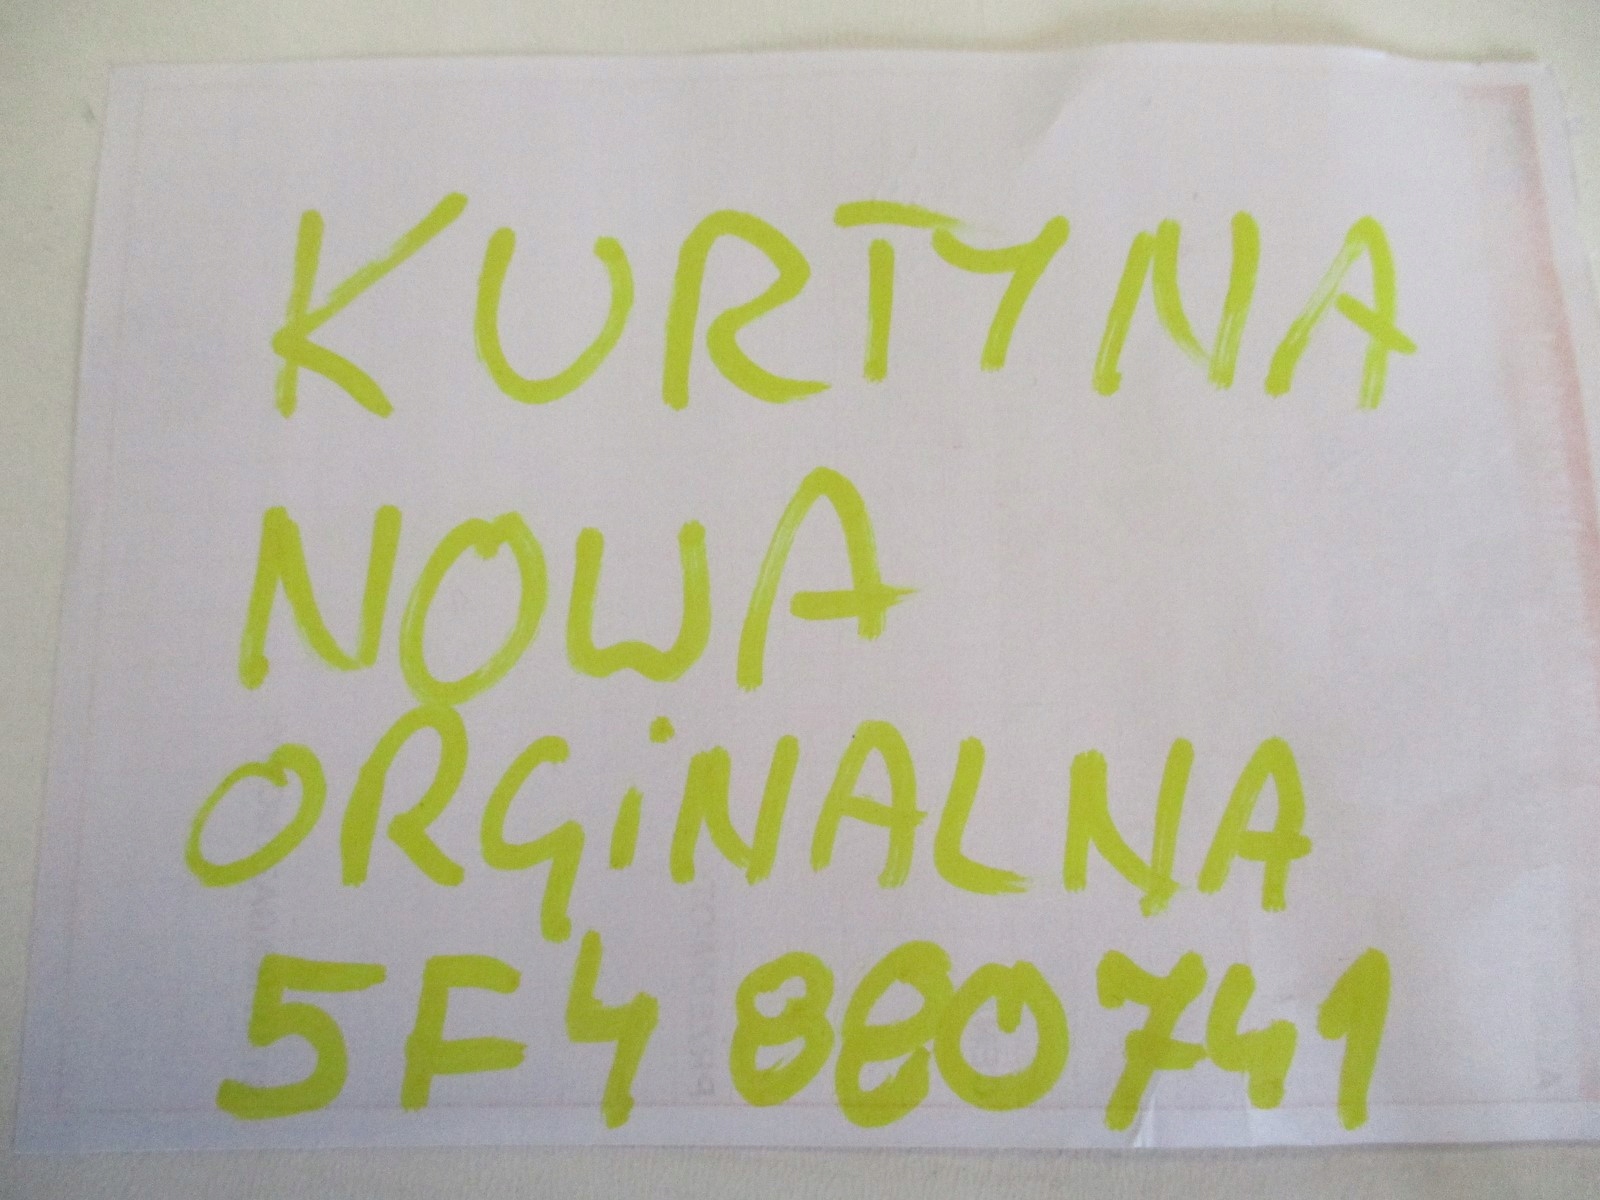 KURTYNA
NOWA
ORGiNALNA
5F4 880741